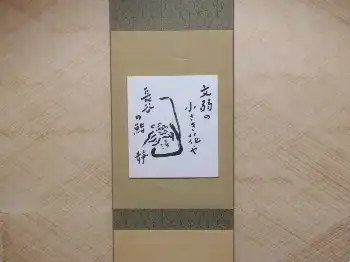 文弱の
小さき花や
長谷
の鮨
静